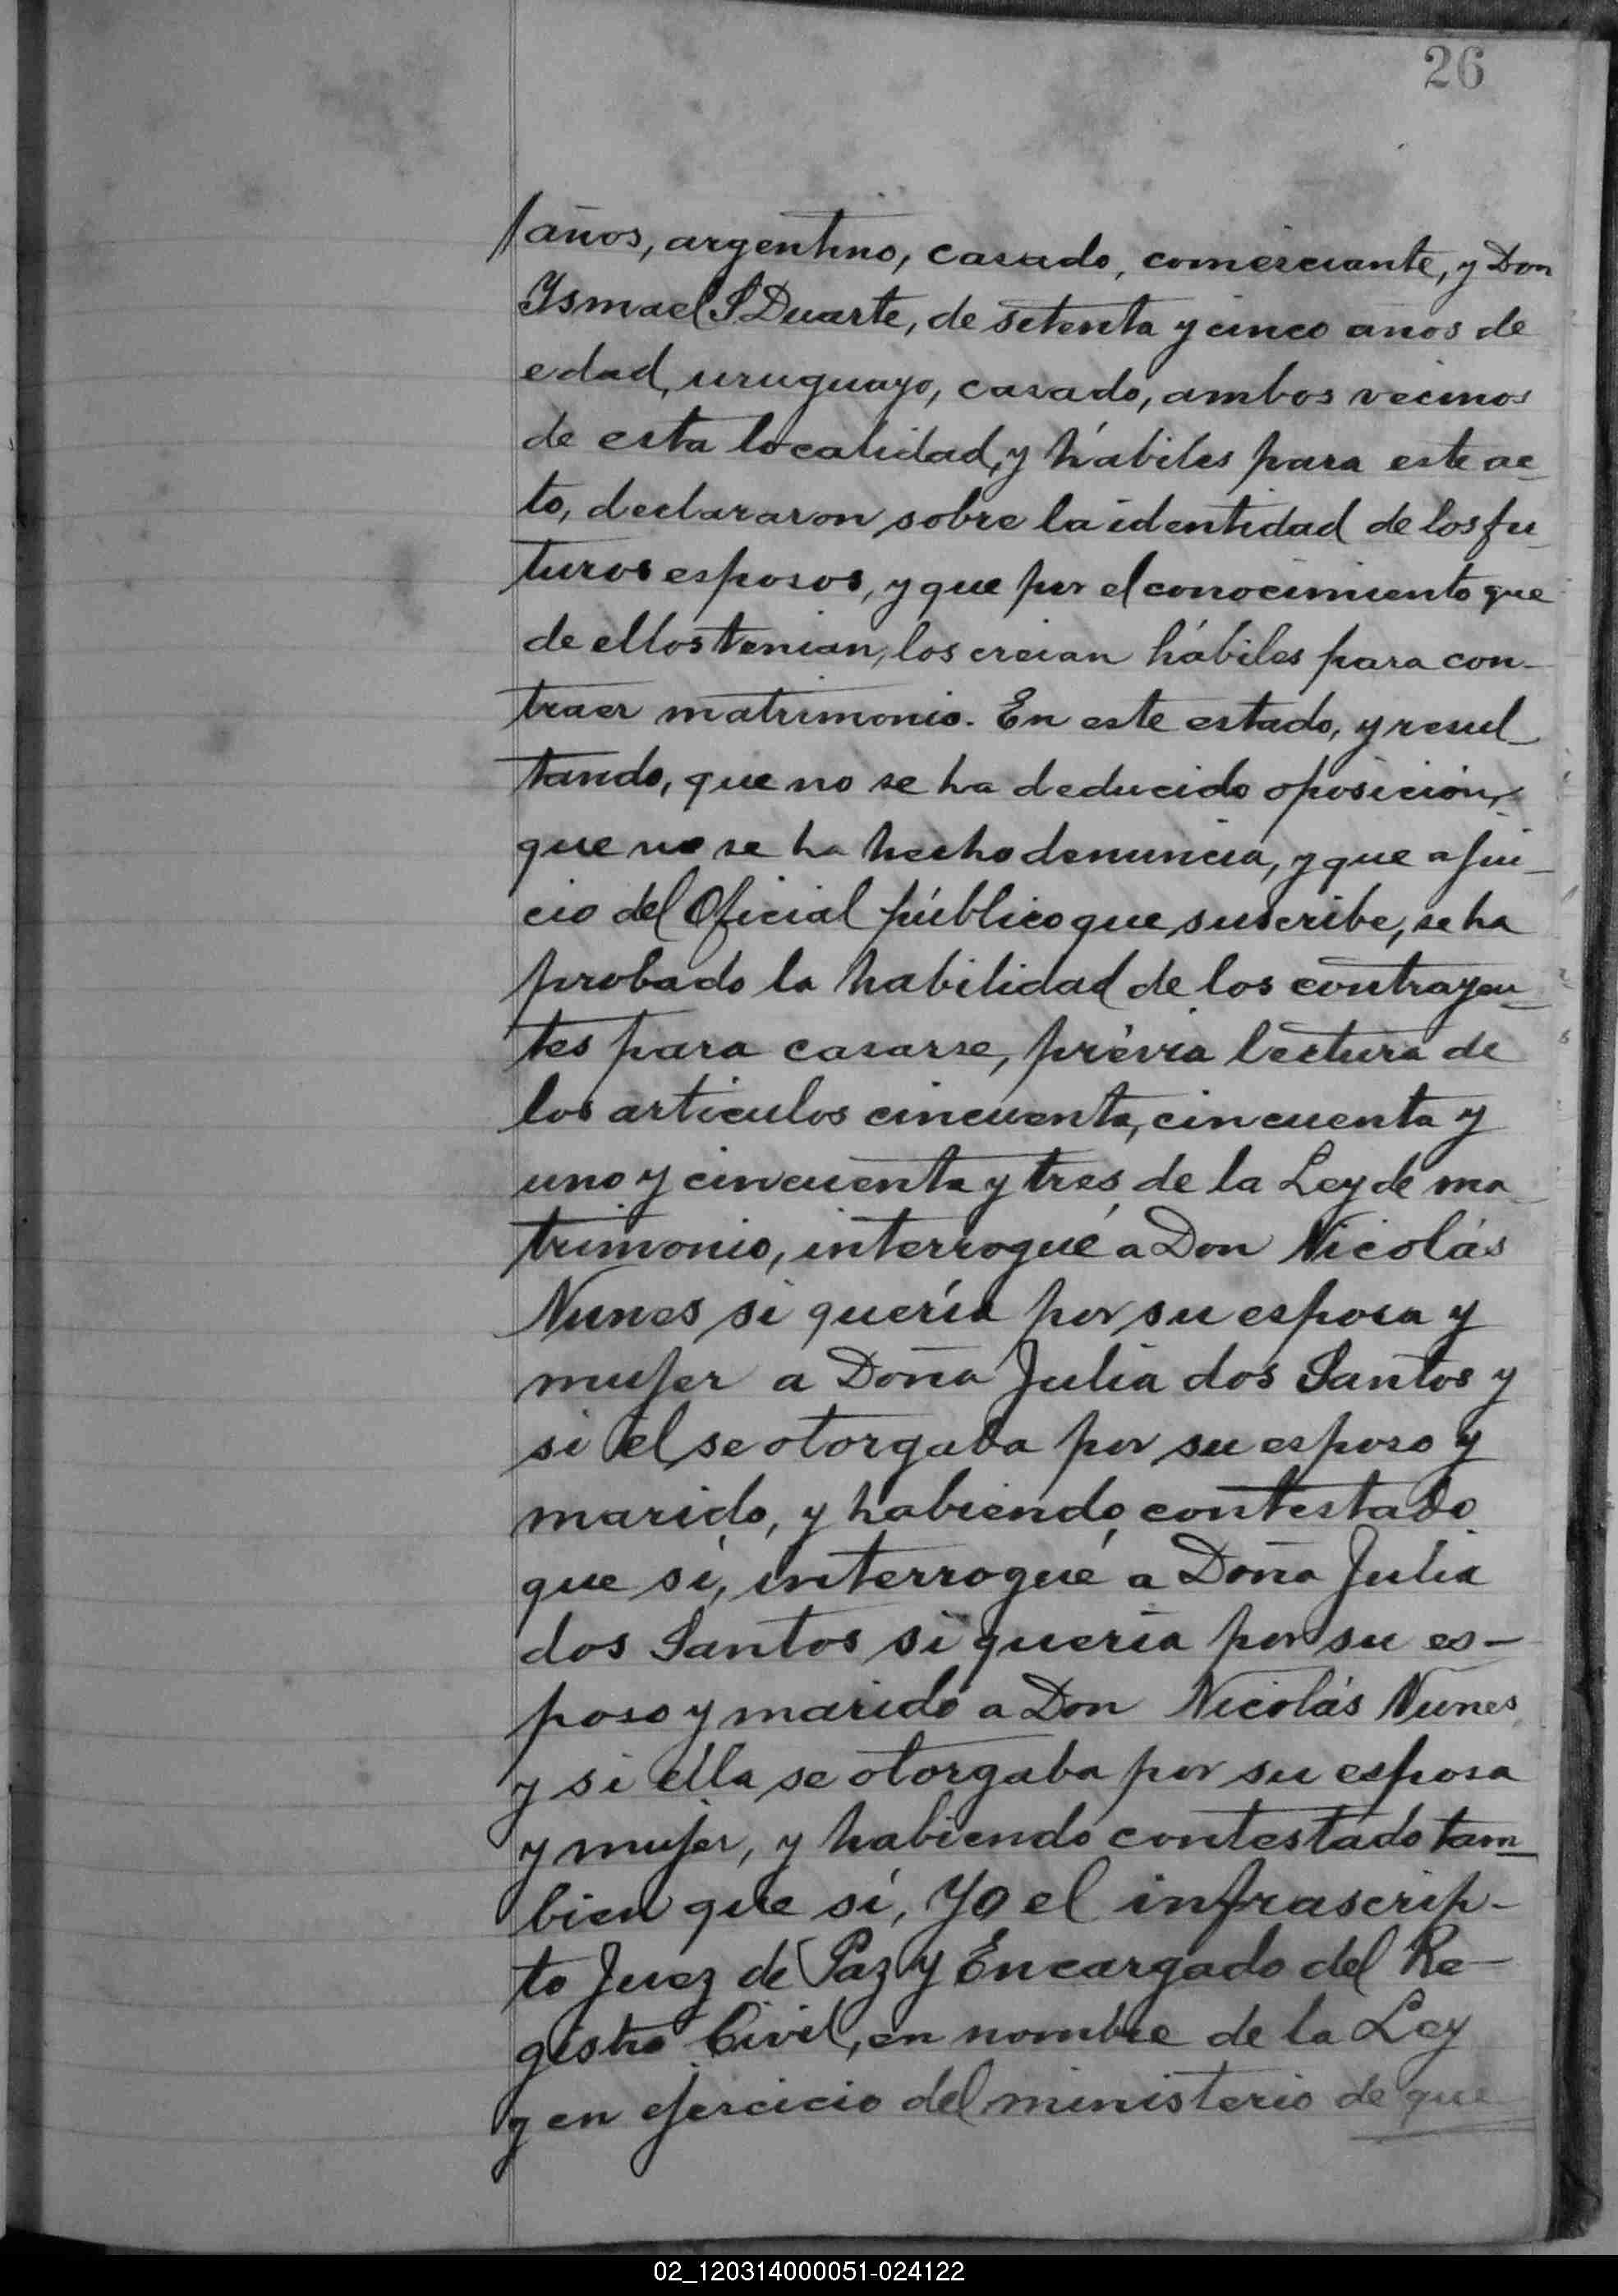 26
años, argentino, casado, comerciante, y Don
Ysmael S Duarte, de setenta y cinco anos de
edad, uruguayo, casado, ambos vecinos
de esta localidad, y hábiles para este ac-
to, declararon sobre la identidad de los fu-
turos esposos, y que por el conocimiento que
de ellos tenian, los creian hábiles para con-
traer matrimonio. En este estado, y resul-
tando, que no se ha deducido oposición,
que no se ha hecho denuncia, y que a jui-
cio del Oficial público que suscribe, se ha
probado la habilidad de los contrayen-
tes para casarse, prévia lectura de
los articulos cincuenta, cincuenta y
uno y cincuenta y tres de la Ley de ma-
trimonio, interrogué a Don Nicolás
Nunes si quería por su esposa y
mujer a Doña Julia dos Santos y
si él se otorgaba por su esposo y
marido, y habiendo contestado
que sí, interrogué a Doña Julia
dos Santos si quería por su es-
poso y marido a Don Nicolás Nunes
y si ella se otorgaba por su esposa
y mujer, y habiendo contestado tam-
bien que sí, Yo el infrascrip-
to Juez de Paz y Encargado del Re-
gistro Civil, en nombre de la Ley
y en ejercicio del ministerio de que
02_120314000051-024122